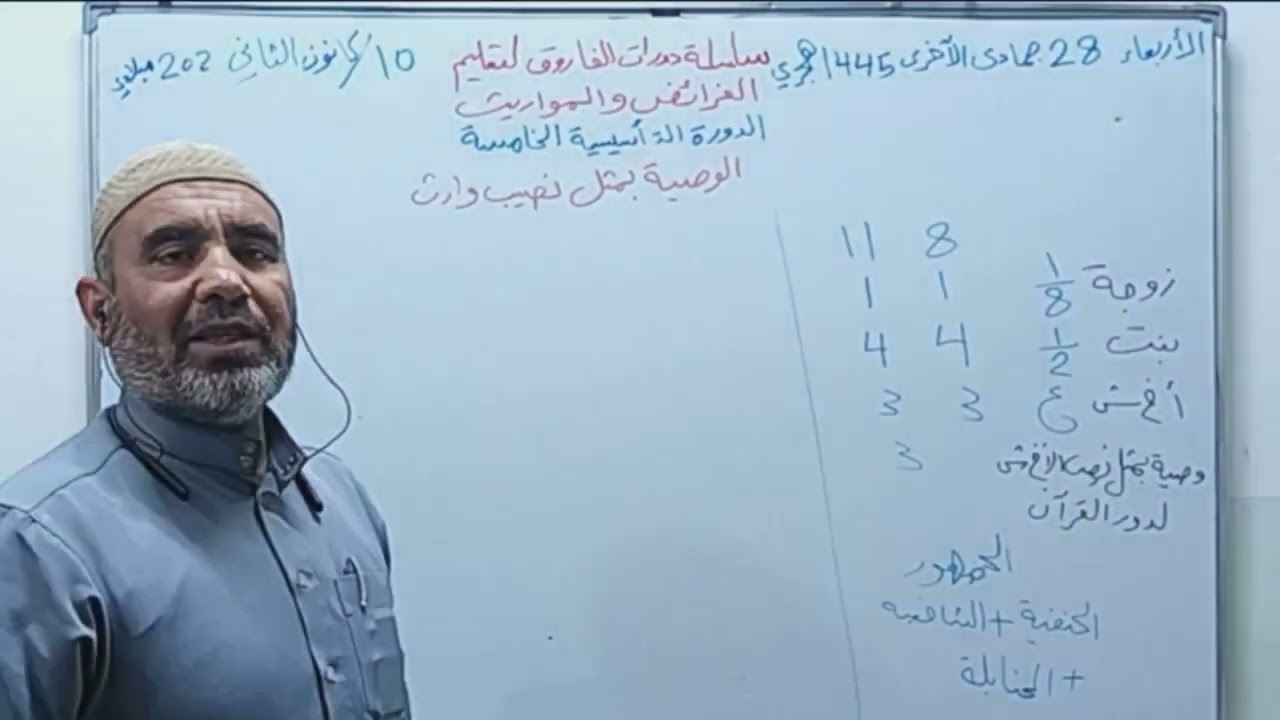 الأربعاء 28 جمادى الآخرى 1445 هجري
سلسلة دورات الفاروق لتعليم
10/كانون الثاني 202 ميلادي
الفرائض والمواريث
الدورة التأسيسية الخامسة
الوصية بمثل نصيب وارث
8 11
زوجة 1/8 1 1
بنت 1/2 4 4
أخ ش ع 3 3
وصية بمثل نصيب الأخ ش 3
لدور القرآن
الجمهور
الحنفية + الشافعية
+ الحنابلة